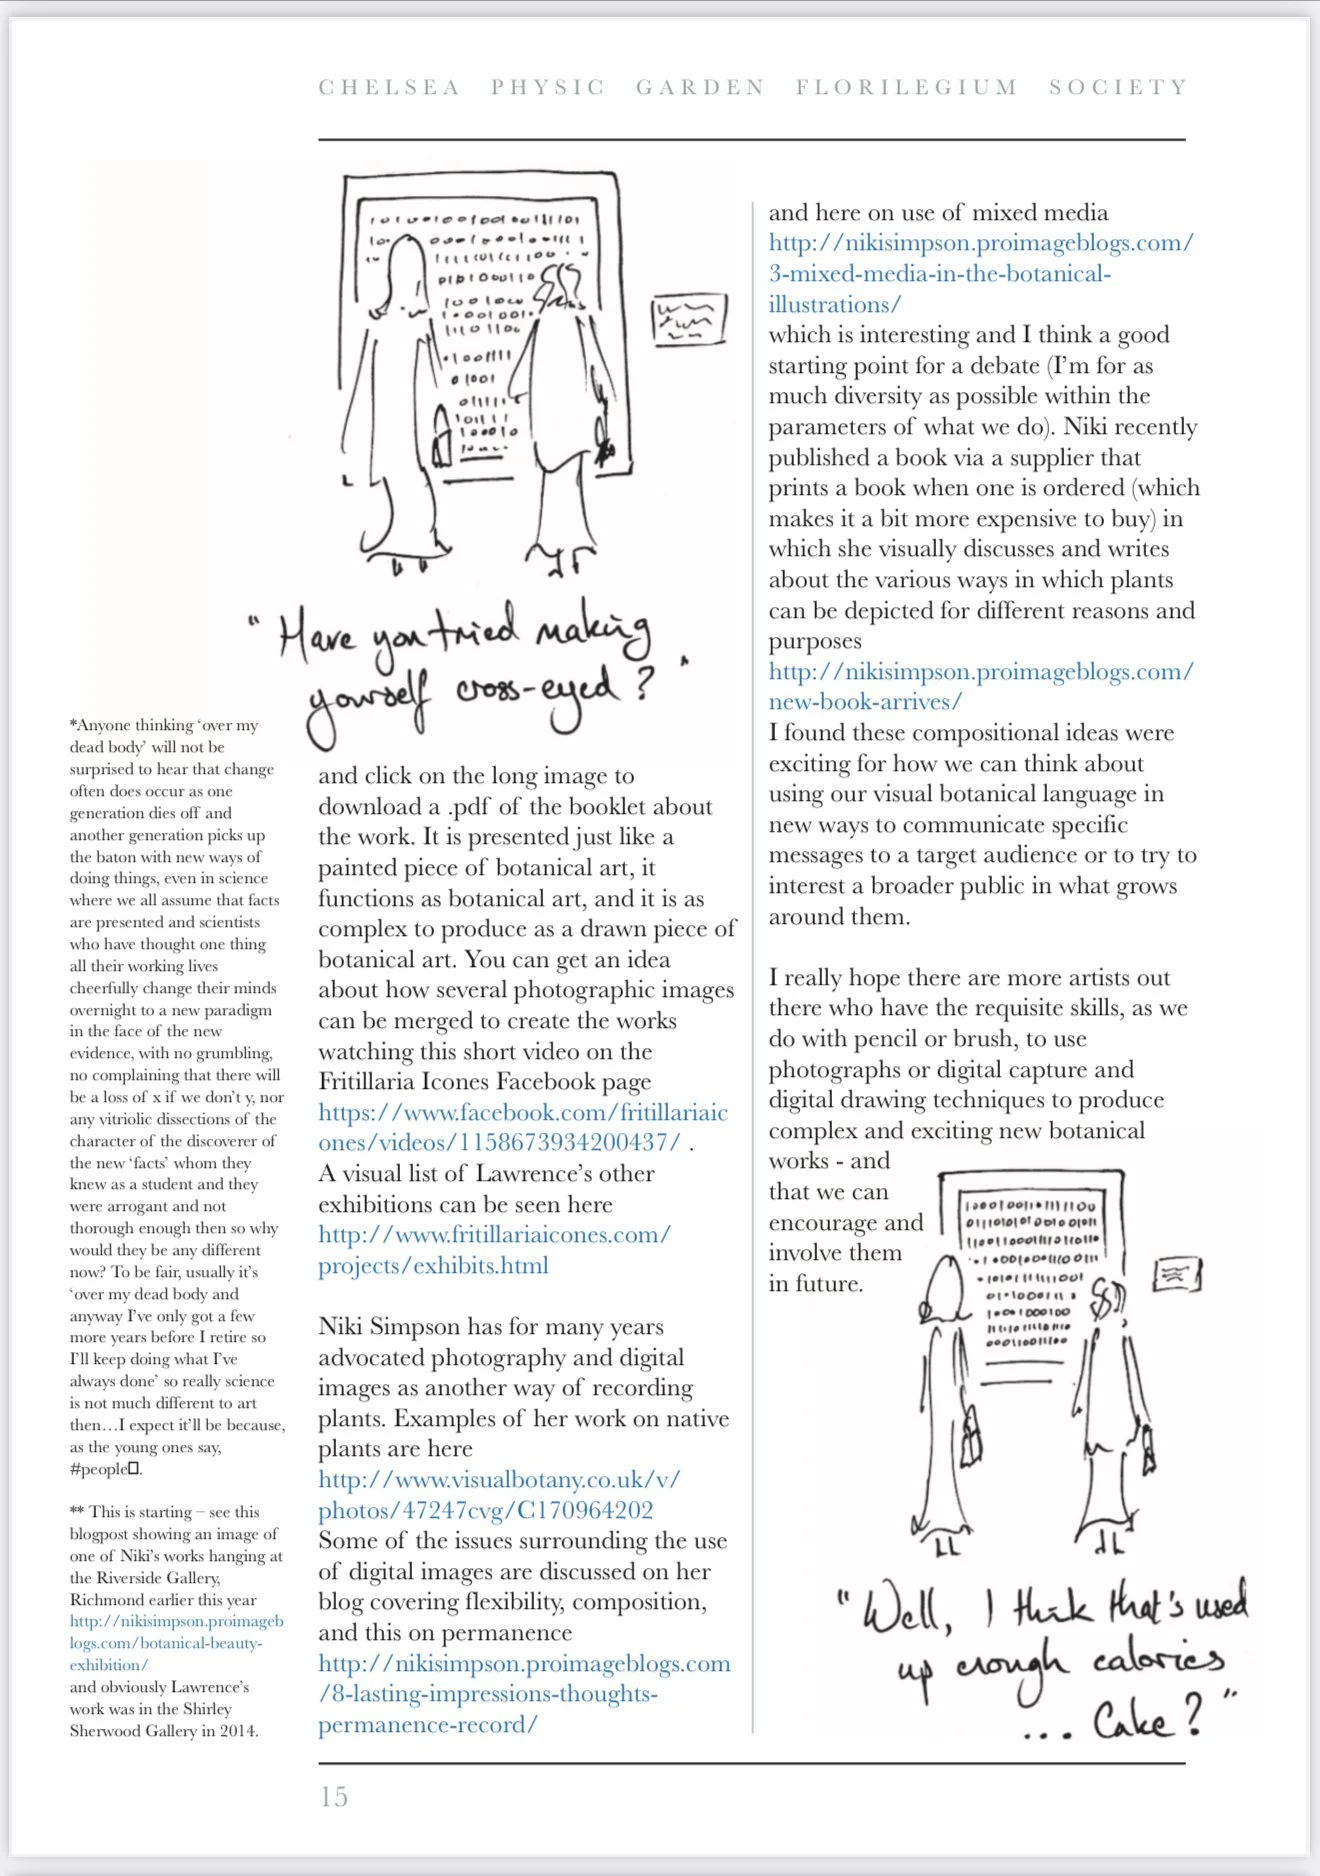 CHELSEA PHYSIC GARDEN FLORILEGIUM SOCIETY
"Have you tried making
yourself cross-eyed?"
*Anyone thinking ‘over my
dead body’ will not be
surprised to hear that change
often does occur as one
generation dies off and
another generation picks up
the baton with new ways of
doing things, even in science
where we all assume that facts
are presented and scientists
who have thought one thing
all their working lives
cheerfully change their minds
overnight to a new paradigm
in the face of the new
evidence, with no grumbling,
no complaining that there will
be a loss of x if we don’t y, nor
any vitriolic dissections of the
character of the discoverer of
the new ‘facts’ whom they
knew as a student and they
were arrogant and not
thorough enough then so why
would they be any different
now? To be fair, usually it’s
‘over my dead body and
anyway I’ve only got a few
more years before I retire so
I’ll keep doing what I’ve
always done’ so really science
is not much different to art
then…I expect it’ll be because,
as the young ones say,
#people.
** This is starting – see this
blogpost showing an image of
one of Niki’s works hanging at
the Riverside Gallery,
Richmond earlier this year
http://nikisimpson.proimageb
logs.com/botanical-beauty-
exhibition/
and obviously Lawrence’s
work was in the Shirley
Sherwood Gallery in 2014.
and click on the long image to
download a .pdf of the booklet about
the work. It is presented just like a
painted piece of botanical art, it
functions as botanical art, and it is as
complex to produce as a drawn piece of
botanical art. You can get an idea
about how several photographic images
can be merged to create the works
watching this short video on the
Fritillaria Icones Facebook page
https://www.facebook.com/fritillariaic
ones/videos/1158673934200437/ .
A visual list of Lawrence’s other
exhibitions can be seen here
http://www.fritillariaicones.com/
projects/exhibits.html
Niki Simpson has for many years
advocated photography and digital
images as another way of recording
plants. Examples of her work on native
plants are here
http://www.visualbotany.co.uk/v/
photos/47247cvg/C170964202
Some of the issues surrounding the use
of digital images are discussed on her
blog covering flexibility, composition,
and this on permanence
http://nikisimpson.proimageblogs.com
/8-lasting-impressions-thoughts-
permanence-record/
and here on use of mixed media
http://nikisimpson.proimageblogs.com/
3-mixed-media-in-the-botanical-
illustrations/
which is interesting and I think a good
starting point for a debate (I’m for as
much diversity as possible within the
parameters of what we do). Niki recently
published a book via a supplier that
prints a book when one is ordered (which
makes it a bit more expensive to buy) in
which she visually discusses and writes
about the various ways in which plants
can be depicted for different reasons and
purposes
http://nikisimpson.proimageblogs.com/
new-book-arrives/
I found these compositional ideas were
exciting for how we can think about
using our visual botanical language in
new ways to communicate specific
messages to a target audience or to try to
interest a broader public in what grows
around them.
I really hope there are more artists out
there who have the requisite skills, as we
do with pencil or brush, to use
photographs or digital capture and
digital drawing techniques to produce
complex and exciting new botanical
works - and
that we can
encourage and
involve them
in future.
"Well, I think that's used
up enough calories
... Cake?"
15